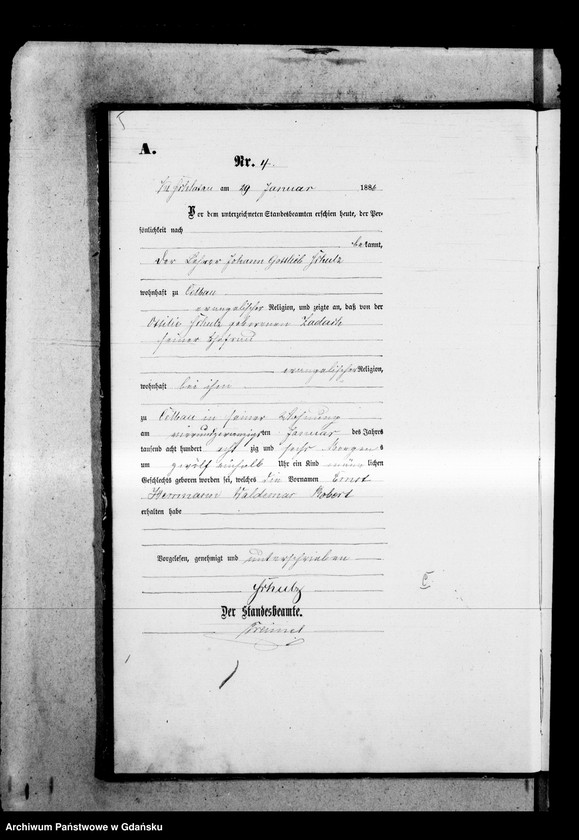 A.
Nr. 4.
am 29 Januar 1886
Vor dem unterzeichneten Standesbeamten erschien heute, der Per-
sönlichkeit nach
bekannt,
der Lehrer Johann Gottlieb Schulz
wohnhaft zu
evangelischer Religion, und zeigte an, daß von der
Ottilie Schulz geborenen
seiner Ehefrau
evangelischer Religion,
wohnhaft bei ihm
zu in seiner Wohnung
am vierundzwanzigsten Januar des Jahres
tausend acht hundert acht zig und sechs Morgens
um zwölf einhalb Uhr ein Kind männlichen
Geschlechts geboren worden sei, welches die Vornamen Ernst
Herrmann Waldemar Robert
erhalten habe
Vorgelesen, genehmigt und unterschrieben
Schulz
Der Standesbeamte.
Archiwum Państwowe w Gdańsku